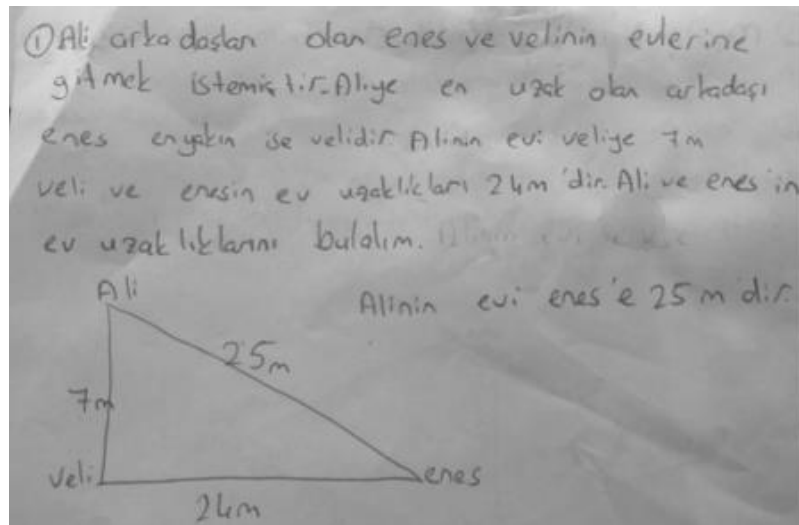 ① Ali arkadaşları olan enes ve velinin evlerine
gitmek istemiştir. Aliye en uzak olan arkadaşı
enes en yakın ise velidir. Alinin evi veliye 7m
veli ve enesin ev uzaklıkları 24m'dir. Ali ve enes'in
ev uzaklıklarını bulalım.
Alinin evi enes'e 25 m'dir.
Ali
25m
7m
veli
enes
24m